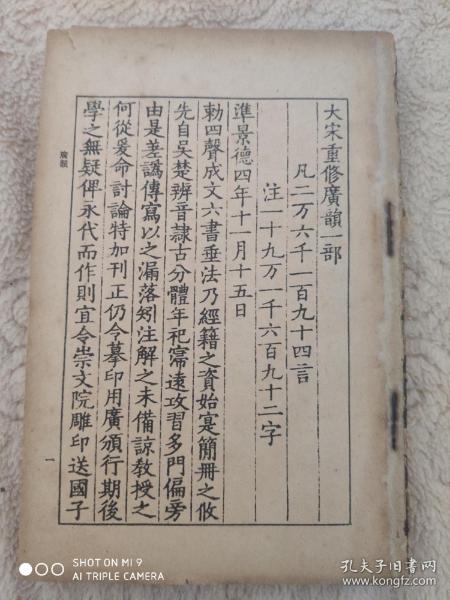 大宋重修廣韻一部
凡二万六千一百九十四言
注一十九万一千六百九十二字
準景德四年十一月十五日
勑四聲成文六書垂法乃經籍之資始寔簡冊之攸
先自吳楚辨音隷古分體年祀寖遠攻習多門偏旁
由是差譌傳寫以之漏落矧注解之未備諒教授之
何從爰命討論特加刊正仍令摹印用廣頒行期後
學之無疑俾永代而作則宜令崇文院雕印送國子
廣韻
一
SHOT ON MI 9
AI TRIPLE CAMERA
孔夫子旧书网
www.kongfz.com